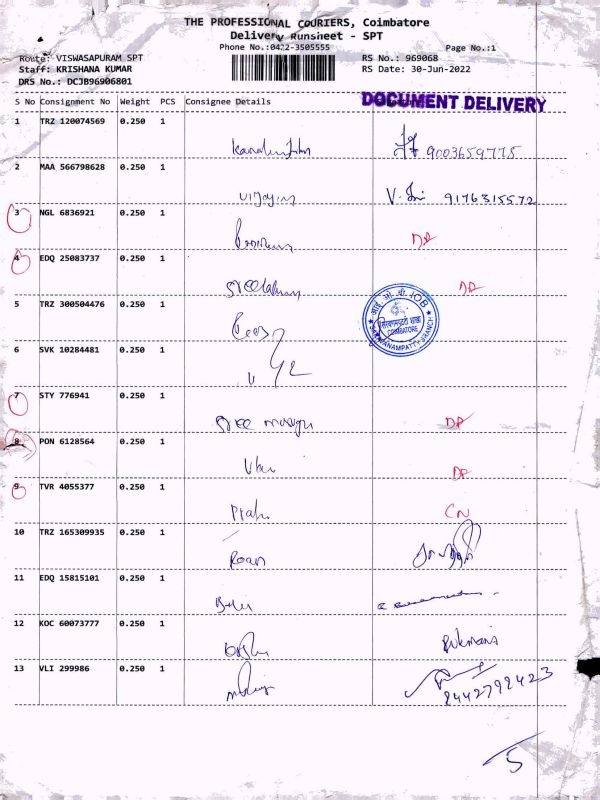 THE PROFESSIONAL COURIERS, Coimbatore
Delivery Runsheet - SPT
Phone No.:0422-3505555
Page No.:1
Route: VISWASAPURAM SPT
RS No.: 969068
Staff: KRISHANA KUMAR
RS Date: 30-Jun-2022
DRS No.: DCJB96906801
S No Consignment No Weight PCS Consignee Details
DOCUMENT DELIVERY
1 TRZ 120074569 0.250 1
9003659775
2 MAA 566798628 0.250 1
V. 9176315572
3 NGL 6836921 0.250 1
4 EDQ 25083737 0.250 1
5 TRZ 300504476 0.250 1
आई. ओ. बी. IOB
COIMBATORE
SARAVANAMPATTY BRANCH
6 SVK 10284481 0.250 1
7 STY 776941 0.250 1
Sree
8 PON 6128564 0.250 1
9 TVR 4055377 0.250 1
CN
10 TRZ 165309935 0.250 1
11 EDQ 15815101 0.250 1
12 KOC 60073777 0.250 1
Rukmani
13 VLI 299986 0.250 1
9442792423
5